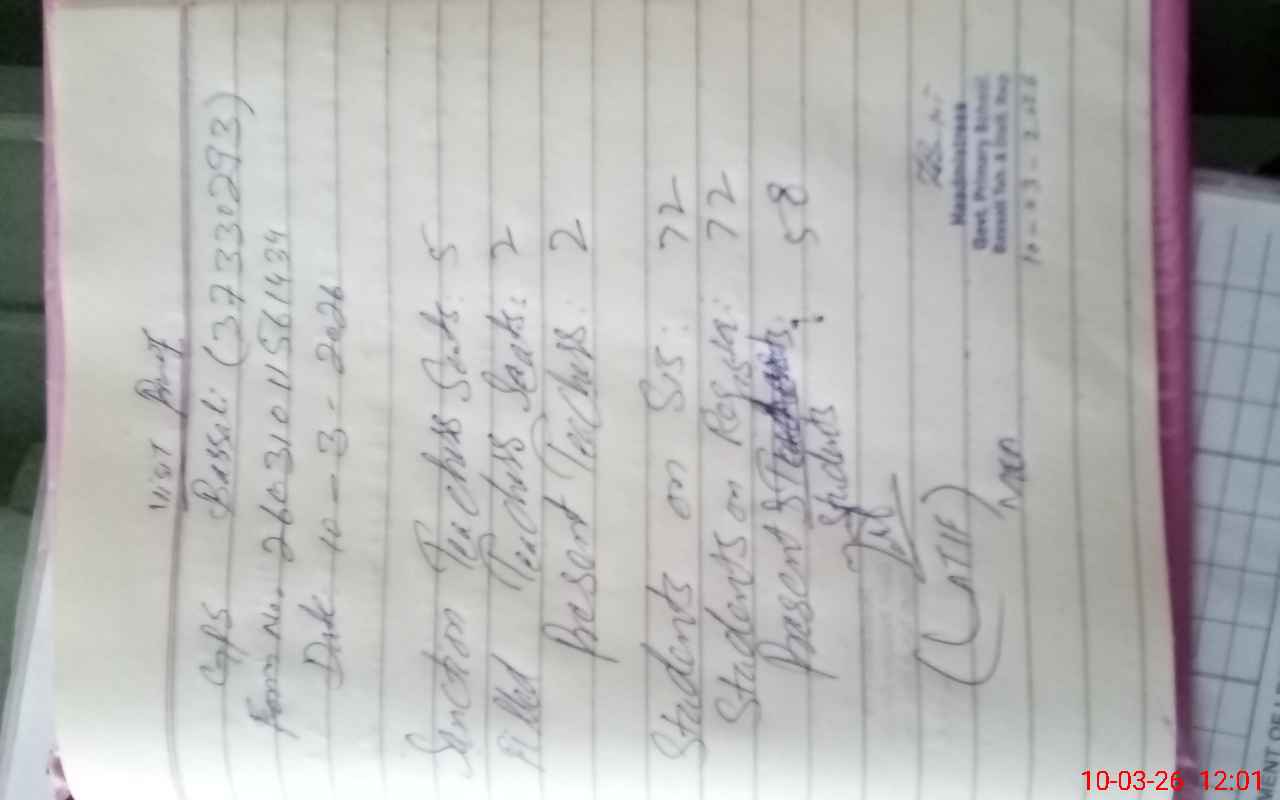 Visit Proof
GGPS Bassali (37330293)
Form No. 26031011561434
Date 10-3-2026
Sanction Teachers Seats: 5
Filled Teachers Seats: 2
Present Teachers: 2
Students on SIS: 72
Students on Register: 72
Present : 58
Students
(LATIF)
MEA
Headmistress
Govt. Primary School
Bassali Teh & Distt. Rwp
10-03-2026
10-03-26 12:01
MENT OF